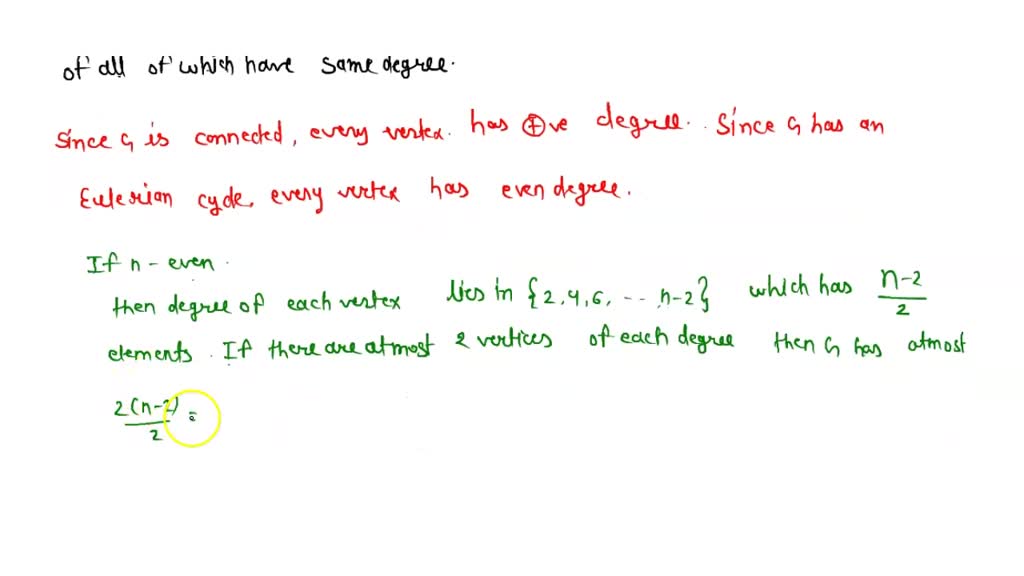 of all of which have same degree.
Since G is connected, every vertex. has ⊕ve degree. Since G has an
Eulerian cycle, every vertex has even degree.
If n - even.
then degree of each vertex lies in {2,4,6, -- n-2} which has n-2/2
elements. If there are atmost 2 vertices of each degree then G has atmost
2(n-2)/2 =